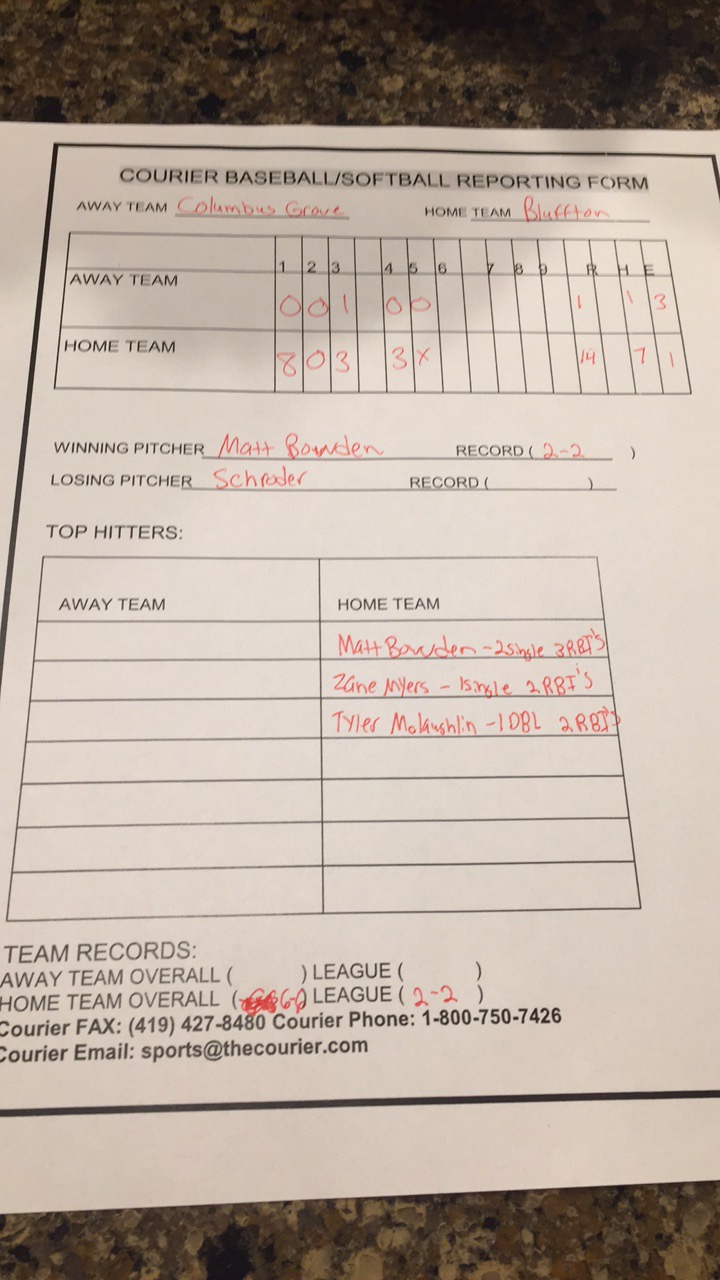 COURIER BASEBALL/SOFTBALL REPORTING FORM
AWAY TEAM Columbus Grove HOME TEAM Bluffton
1 2 3 4 5 6 7 8 9 R H E
AWAY TEAM 0 0 1 0 0 1 1 3
HOME TEAM 8 0 3 3 X 14 7 1
WINNING PITCHER Matt Bowden RECORD ( 2-2 )
LOSING PITCHER Schroder RECORD ( )
TOP HITTERS:
AWAY TEAM HOME TEAM
Matt Bowden - 2 single 3 RBI's
Zane Myers - 1 single 2 RBI's
Tyler Mclaughlin - 1 DBL 2 RBI's
TEAM RECORDS:
AWAY TEAM OVERALL ( ) LEAGUE ( )
HOME TEAM OVERALL ( ) LEAGUE ( 2-2 )
Courier FAX: (419) 427-8480 Courier Phone: 1-800-750-7426
Courier Email: sports@thecourier.com